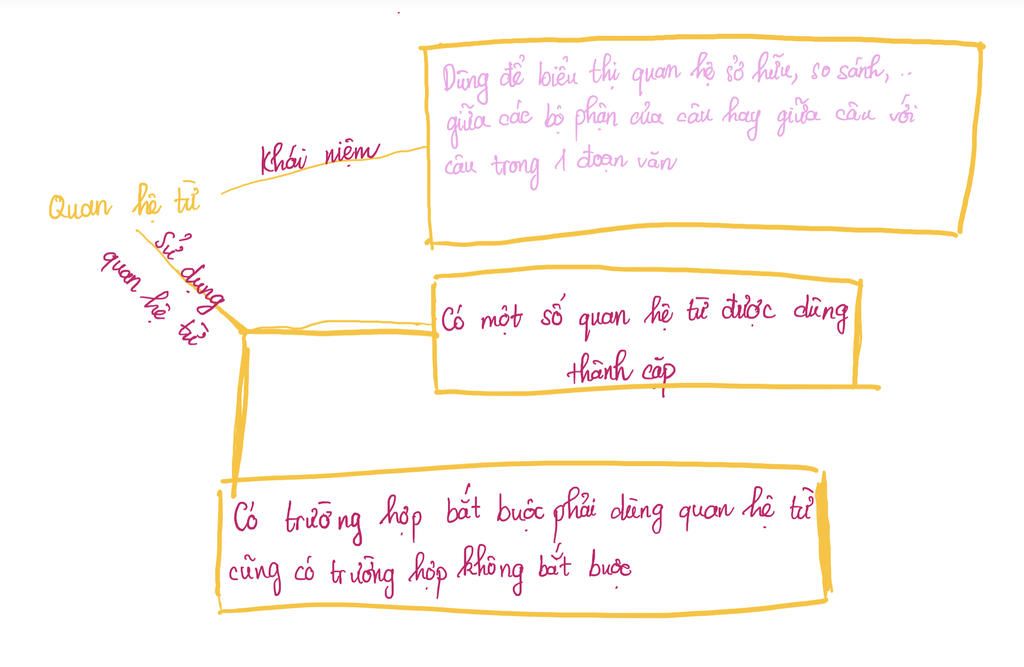 Dùng để biểu thị quan hệ sở hữu, so sánh, ..
giữa các bộ phận của câu hay giữa câu với
câu trong 1 đoạn văn
Khái niệm
Quan hệ từ
Sử dụng
quan hệ từ
Có một số quan hệ từ được dùng
thành cặp
Có trường hợp bắt buộc phải dùng quan hệ từ
cũng có trường hợp không bắt buộc